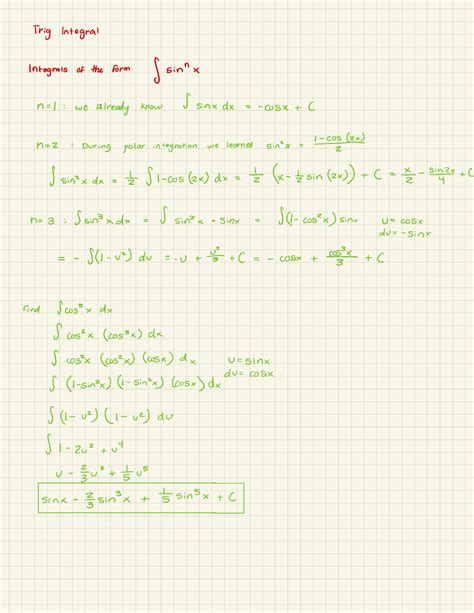 Trig Integral
Integrals of the form ∫ sinⁿ x
n=1 : we already know ∫ sinx dx = -cosx + C
n=2 : During polar integration we learned sin²x = (1-cos(2x))/2
∫ sin²x dx = 1/2 ∫ 1-cos(2x) dx = 1/2 (x - 1/2 sin(2x)) + C = x/2 - sin2x/4 + C
n=3 : ∫ sin³x dx = ∫ sin²x · sinx = ∫ (1-cos²x) sinx u= cosx
du= -sinx
= - ∫(1-u²) du = -u + u³/3 + C = - cosx + cos³x/3 + C
Find ∫cos⁵x dx
∫ cos²x (cos³x) dx
∫ cos²x (cos²x) (cosx) dx u= sinx
du= cosx
∫ (1-sin²x) (1-sin²x) (cosx) dx
∫ (1-u²) (1-u²) du
∫ 1-2u² + u⁴
u - 2/3 u³ + 1/5 u⁵
sinx - 2/3 sin³x + 1/5 sin⁵x + C